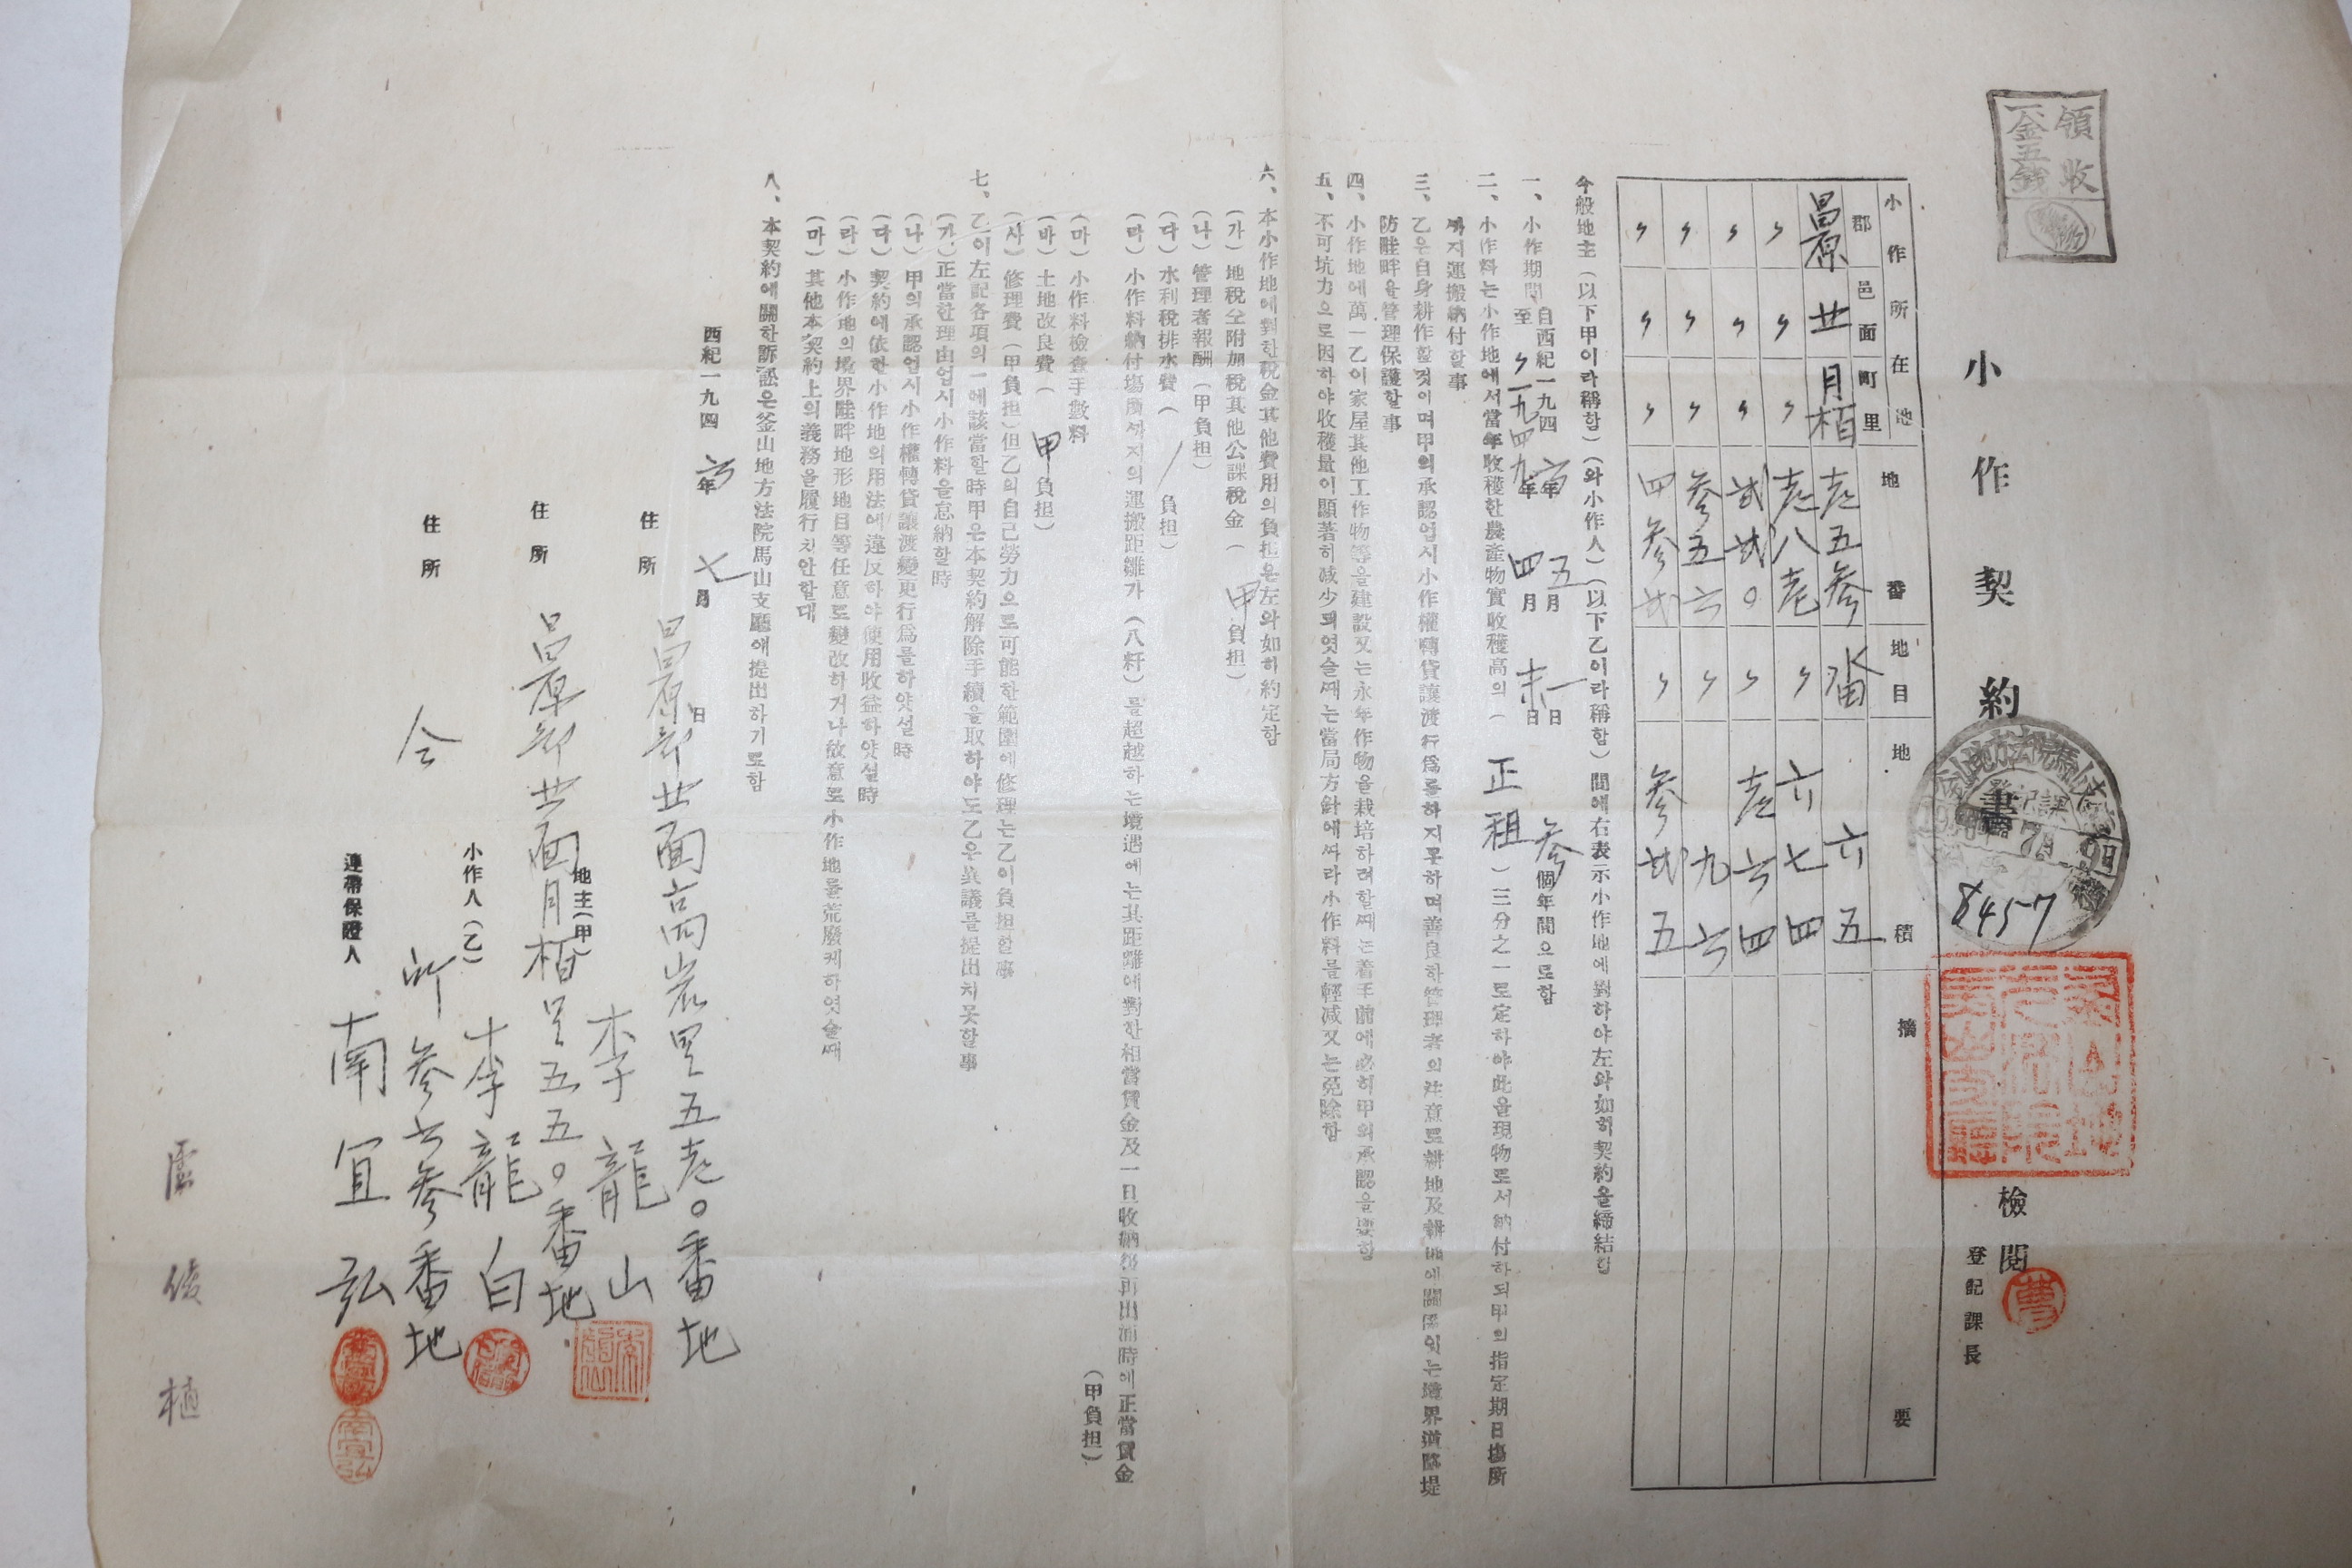 領收
金五錢
小作契約書
8457
檢閱
登記課長
小作所在地 地番 地目 地積 摘要
郡 邑面 町里
昌原 北 月栢 壱五参 畓 六五
〃 〃 〃 壱八壱 〃 六七四
〃 〃 〃 弐弐〇 〃 壱六四
〃 〃 〃 参五六 〃 九六
〃 〃 〃 四参弐 〃 参弐五
今般地主(以下甲이라稱함)(와小作人)(以下乙이라稱함)間에右表示小作地에對하야左와如히契約을締結함
一、小作期間 自西紀一九四六年五月一日
至〃一九四九年四月末日 参個年間으로함
二、小作料는小作地에서當年收穫한農產物實收穫高의(正租)三分之一로定하야此을現物로서納付하되甲의指定期日場所
까지運搬納付할事
三、乙은自身耕作할것이며甲의承認업시小作權轉貸讓渡行爲를하지못하며善良하管理者의注意로耕地及耕地에關係잇는境界道路堤
防畦畔을管理保護할事
四、小作地에萬一乙이家屋其他工作物等을建設又는永年作物을栽培하려할때는着手前에必히甲의承認을要함
五、不可抗力으로因하야收穫量이顯著히減少되엿슬때는當局方針에따라小作料를輕減又는免除함
六、本小作地에對한稅金其他費用의負担은左와如히約定함
(가)地稅仝附加稅其他公課稅金(甲負担)
(나)管理者報酬(甲負担)
(다)水利稅排水費( / 負担)
(라)小作料納付場所까지의運搬距離가(八粁)를超越하는境遇에는其距離에對한相當賃金及一旦收納後再出浦時에正當賃金
(甲負担)
(마)小作料檢查手數料
(바)土地改良費(甲負担)
(사)修理費(甲負担)但乙의自己勞力으로可能한範圍에修理는乙이負担할事
七、乙이左記各項의一에該當할時甲은本契約解除手續을取하야도乙은異議를提出치못할事
(가)正當한理由업시小作料을怠納할時
(나)甲의承認업시小作權轉貸讓渡變更行爲를하얏설時
(다)契約에依한小作地의用法에違反하야使用收益하얏설時
(라)小作地의境界畦畔地形地目等任意로變改하거나故意로小作地를荒廢케하엿슬때
(마)其他本契約上의義務을履行치안할대
八、本契約에關한訴訟은釜山地方法院馬山支廳에提出하기로함
西紀一九四六年七月 日
住所 昌原郡北面高岩里五壱〇番地
地主(甲) 李龍山
住所 昌原郡北面月栢里五五〇番地
小作人(乙) 李龍白
住所 仝所参六参番地
連帶保證人 南宜弘
盧俊植